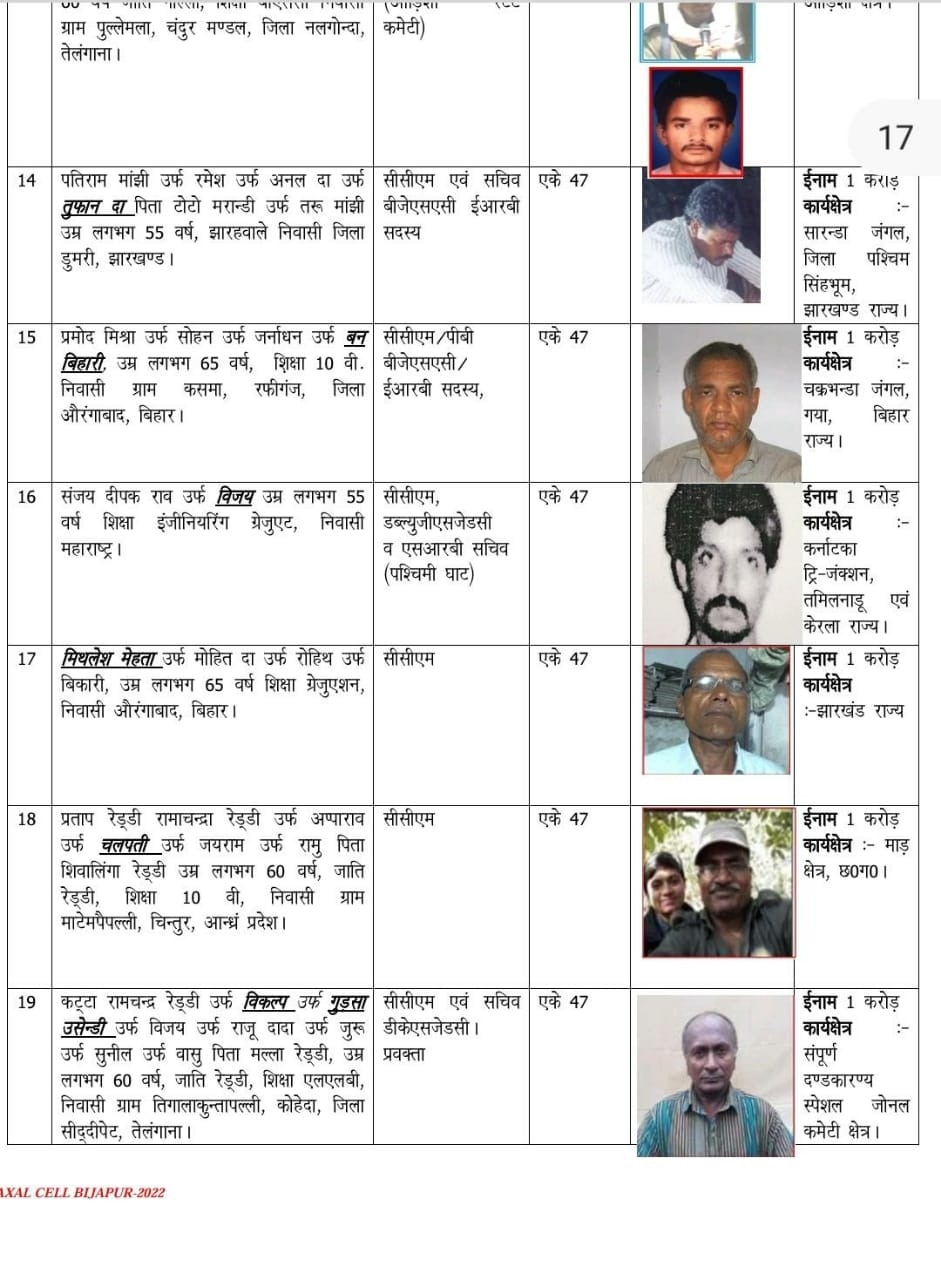 ग्राम पुल्लेमला, चंदुर मण्डल, जिला नलगोन्दा,
तेलंगाना।
कमेटी)
17
14
पतिराम मांझी उर्फ रमेश उर्फ अनल दा उर्फ
तुफान दा पिता टोटो मरान्डी उर्फ तरू मांझी
उम्र लगभग 55 वर्ष, झारहवाले निवासी जिला
डुमरी, झारखण्ड।
सीसीएम एवं सचिव
बीजेएसएसी ईआरबी
सदस्य
एके 47
ईनाम 1 करोड़
कार्यक्षेत्र :-
सारन्डा जंगल,
जिला पश्चिम
सिंहभूम,
झारखण्ड राज्य।
15
प्रमोद मिश्रा उर्फ सोहन उर्फ जर्नाधन उर्फ बन
बिहारी, उम्र लगभग 65 वर्ष, शिक्षा 10 वी.
निवासी ग्राम कसमा, रफीगंज, जिला
औरंगाबाद, बिहार।
सीसीएम/पीबी
बीजेएसएसी/
ईआरबी सदस्य,
एके 47
ईनाम 1 करोड़
कार्यक्षेत्र :-
चक्रभन्डा जंगल,
गया, बिहार
राज्य।
16
संजय दीपक राव उर्फ विजय उम्र लगभग 55
वर्ष शिक्षा इंजीनियरिंग ग्रेजुएट, निवासी
महाराष्ट्र।
सीसीएम,
डब्ल्युजीएसजेडसी
व एसआरबी सचिव
(पश्चिमी घाट)
एके 47
ईनाम 1 करोड़
कार्यक्षेत्र :-
कर्नाटका
ट्रि-जंक्शन,
तमिलनाडू एवं
केरला राज्य।
17
मिथलेश मेहता उर्फ मोहित दा उर्फ रोहिथ उर्फ
बिकारी, उम्र लगभग 65 वर्ष शिक्षा ग्रेजुएशन,
निवासी औरंगाबाद, बिहार।
सीसीएम
एके 47
ईनाम 1 करोड़
कार्यक्षेत्र
:-झारखंड राज्य
18
प्रताप रेड्डी रामाचन्द्रा रेड्डी उर्फ अप्पाराव
उर्फ चलपती उर्फ जयराम उर्फ रामु पिता
शिवालिंगा रेड्डी उम्र लगभग 60 वर्ष, जाति
रेड्डी, शिक्षा 10 वी, निवासी ग्राम
माटेमपैपल्ली, चिन्तुर, आन्ध्रं प्रदेश।
सीसीएम
एके 47
ईनाम 1 करोड़
कार्यक्षेत्र :- माड़
क्षेत्र, छ0ग0।
19
कट्टा रामचन्द्र रेड्डी उर्फ विकल्प उर्फ गुड़सा
उसेन्डी उर्फ विजय उर्फ राजू दादा उर्फ जुरू
उर्फ सुनील उर्फ वासु पिता मल्ला रेड्डी, उम्र
लगभग 60 वर्ष, जाति रेड्डी, शिक्षा एलएलबी,
निवासी ग्राम तिगालाकुन्तापल्ली, कोहेदा, जिला
सीद्दीपेट, तेलंगाना।
सीसीएम एवं सचिव
डीकेएसजेडसी।
प्रवक्ता
एके 47
ईनाम 1 करोड़
कार्यक्षेत्र :-
संपूर्ण
दण्डकारण्य
स्पेशल जोनल
कमेटी क्षेत्र।
AXAL CELL BIJAPUR-2022